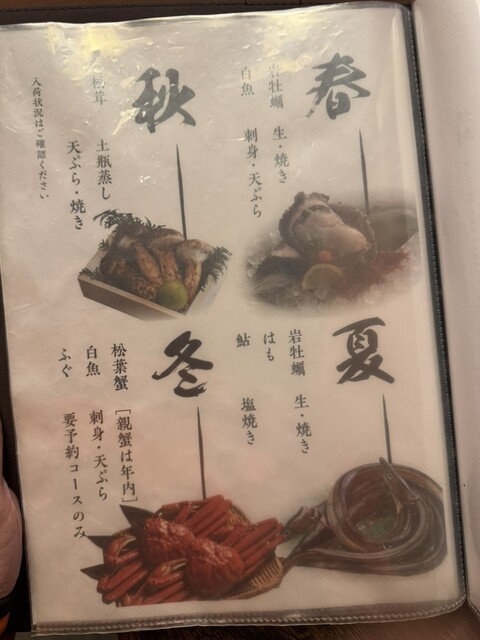 春
岩牡蠣 生・焼き
白魚 刺身・天ぷら
秋
松茸 土瓶蒸し
天ぷら・焼き
入荷状況はご確認ください
夏
岩牡蠣 生・焼き
はも
鮎 塩焼き
冬
松葉蟹 [親蟹は年内]
白魚 刺身・天ぷら
ふぐ 要予約コースのみ